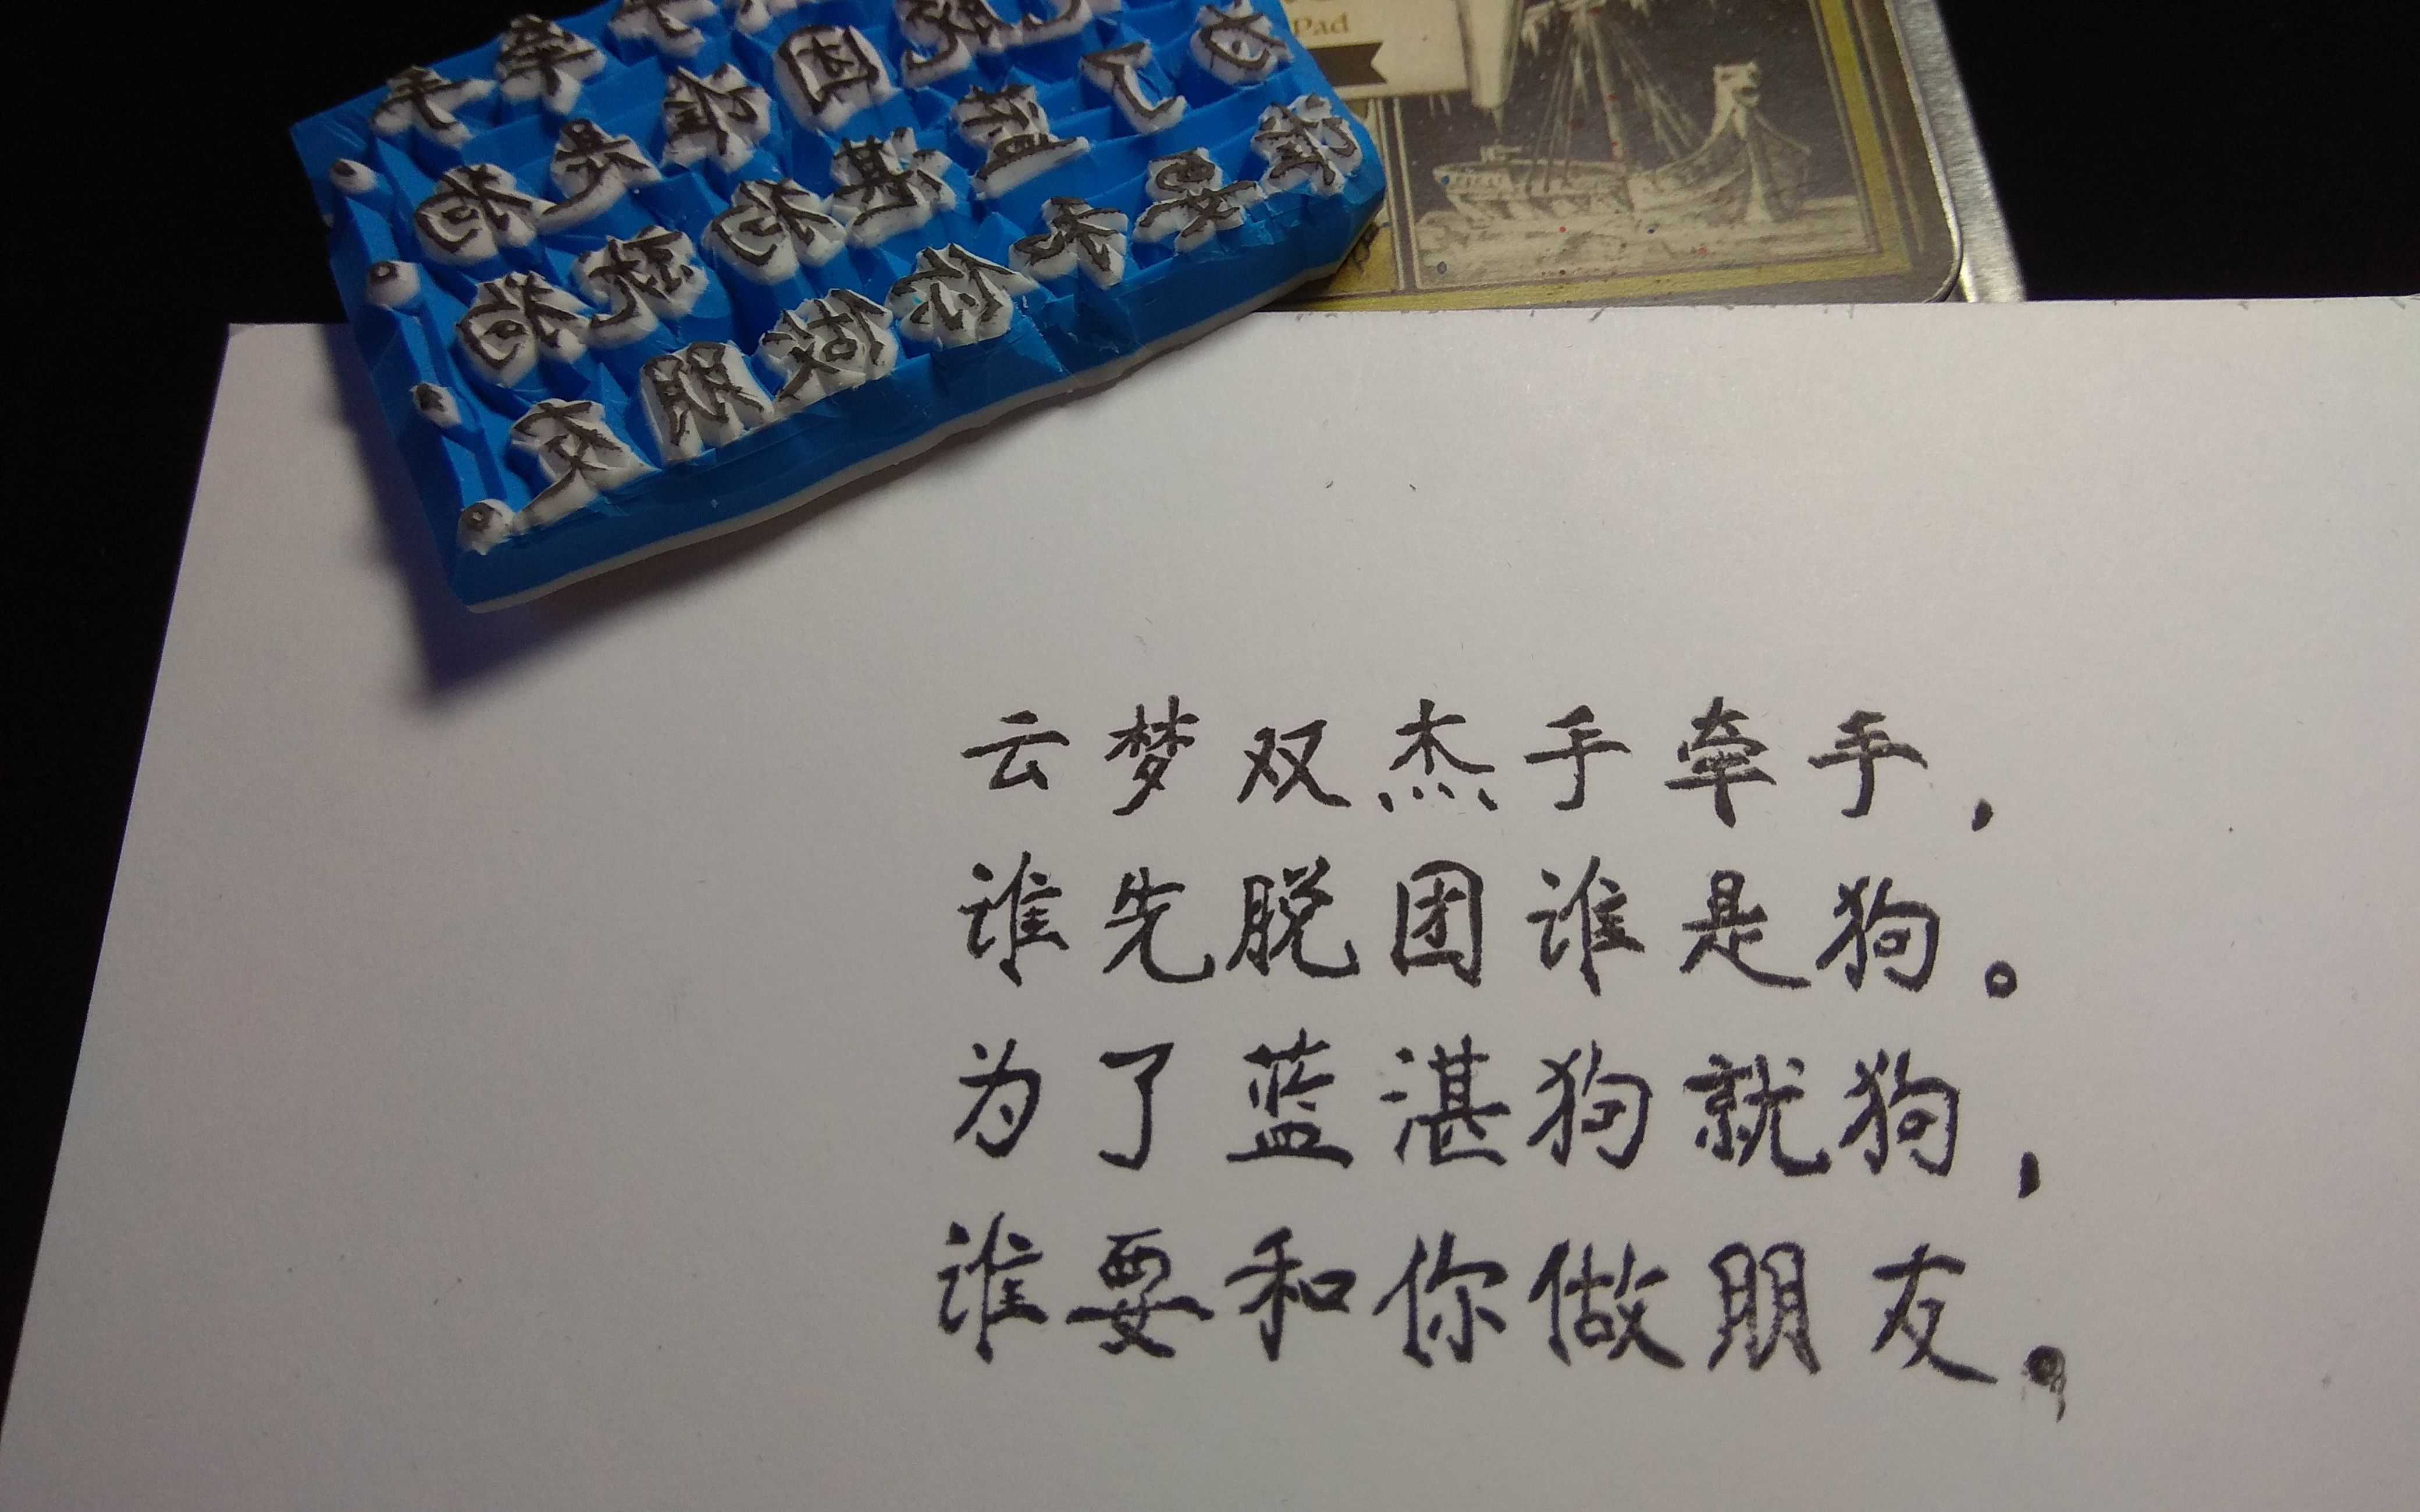 Pad
云梦双杰手牵手,
谁先脱团谁是狗。
为了蓝湛狗就狗,
谁要和你做朋友。